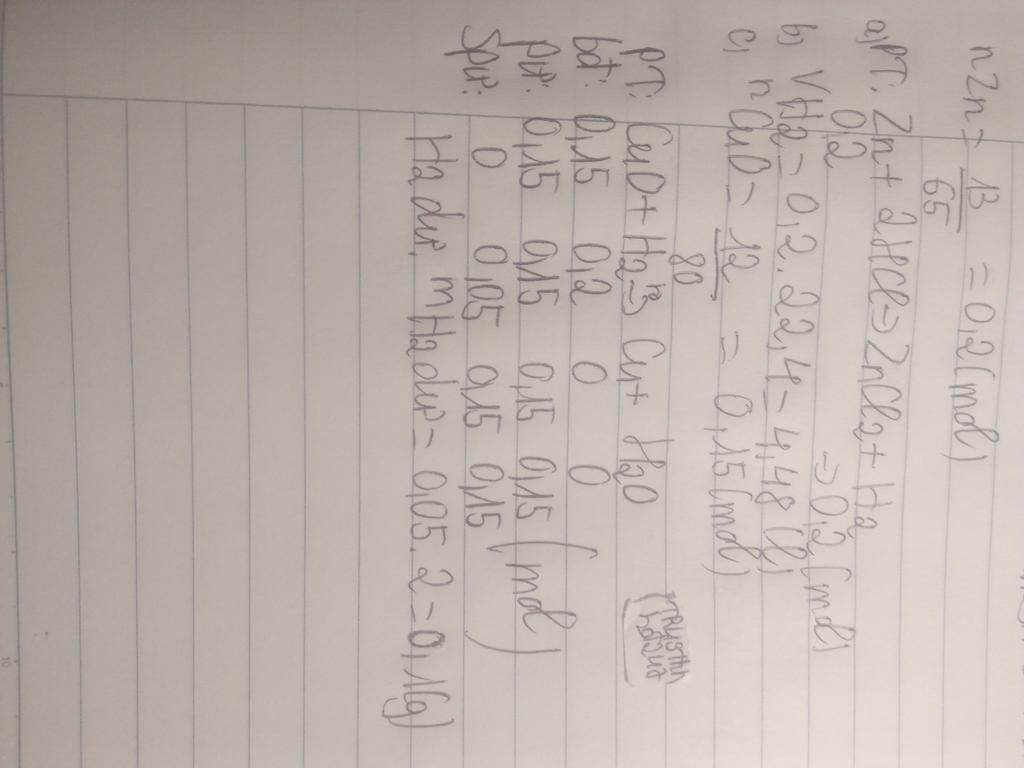 nZn = 13/65 = 0,2 (mol)
a, PT: Zn + 2HCl → ZnCl2 + H2
0,2 ⇒ 0,2 (mol)
b, VH2 = 0,2 . 22,4 = 4,48 (l)
c, nCuO = 12/80 = 0,15 (mol)
PT: CuO + H2 → Cu + H2O
bđ: 0,15 0,2 0 0
pư: 0,15 0,15 0,15 0,15 (mol)
Spư: 0 0,05 0,15 0,15
H2 dư. mH2 dư = 0,05 . 2 = 0,1 (g)